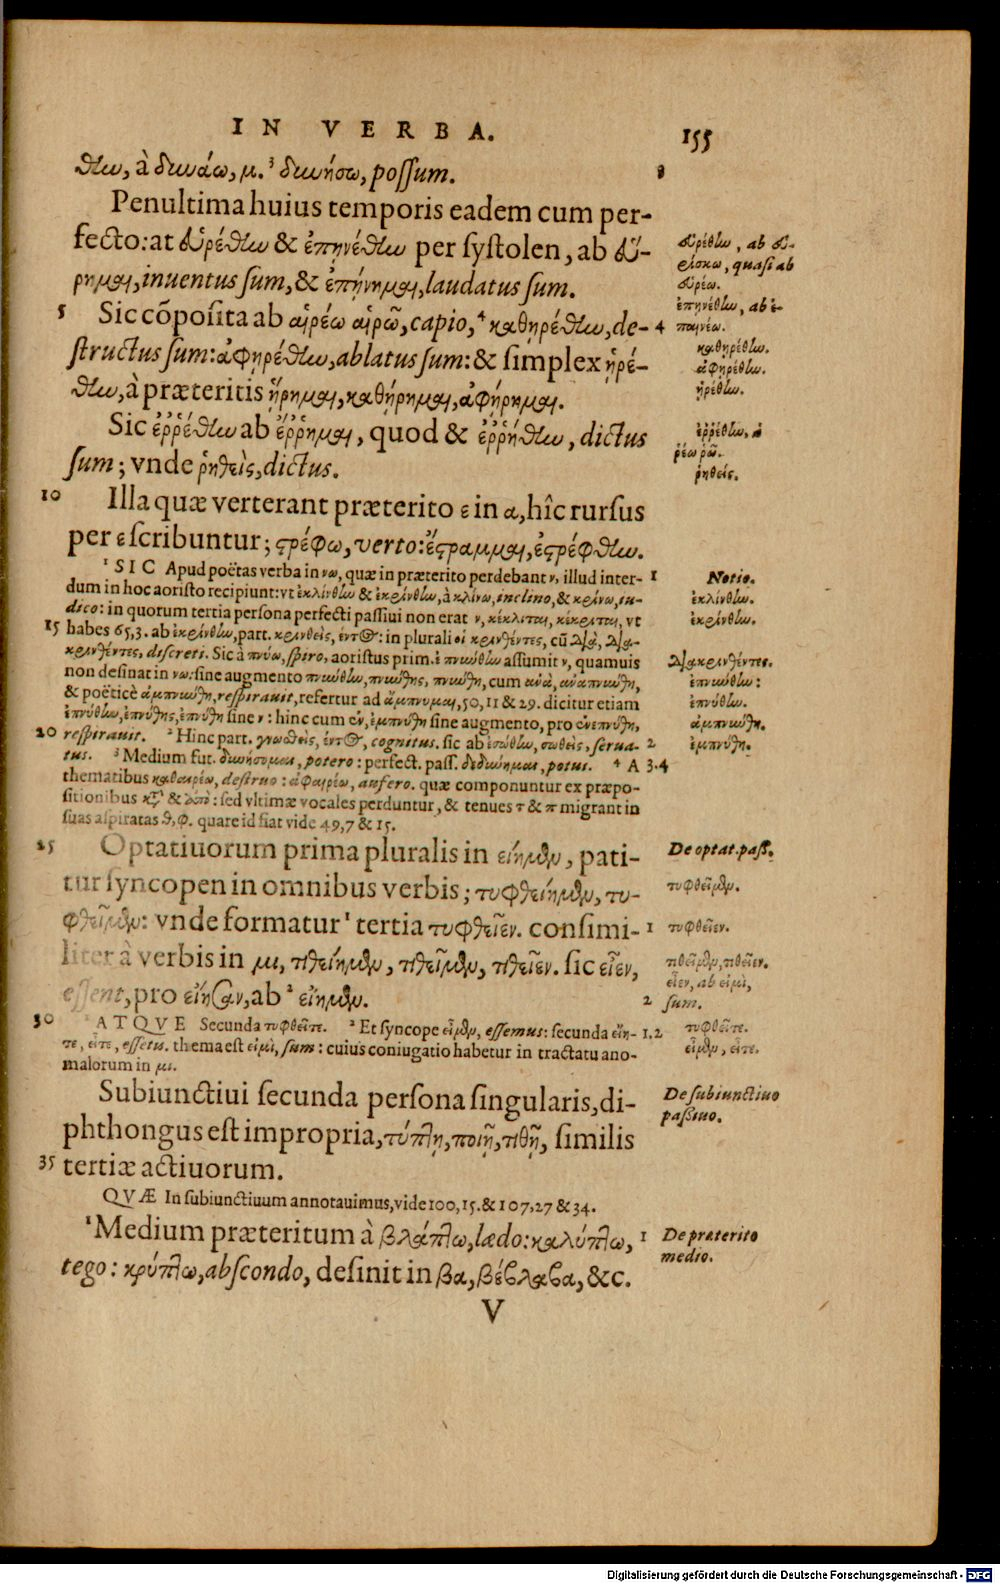 IN VERBA. 155
θίω, à δυνάω, μ.³ δυνήσω, possum. 3
Penultima huius temporis eadem cum per-
fecto: at εὑρέθίω & ἐπηνέθίω per systolen, ab εὕ-
ρημαι, inuentus sum, & ἐπήνημαι, laudatus sum.
5 Sic cõposita ab αἱρέω αἱρῶ, capio,⁴ καθηρέθίω, de- 4
structus sum: ἀφηρέθίω, ablatus sum: & simplex ᾑρέ-
θίω, à præteritis ᾕρημαι, καθήρημαι, ἀφήρημαι.
Sic ἐῤῥέθίω ab ἔῤῥημαι, quod & ἐῤῥήθίω, dictus
sum; vnde ῥηθεὶς, dictus.
10 Illa quæ verterant præterito ε in α, hîc rursus
per ε scribuntur; ςρέφω, verto: ἔςραμμαι, ἐςρέφθίω.
¹ SIC Apud poëtas verba in νω, quæ in præterito perdebant ν, illud inter- 1
dum in hoc aoristo recipiunt: vt ἐκλίνθίω & ἐκρίνθίω, à κλίνω, inclino, & κρίνω, iu-
dico: in quorum tertia persona perfecti passiui non erat ν, κέκλιται, κέκριται, vt
15 habes 65,3. ab ἐκρίνθίω, part. κρινθεὶς, έντος: in plurali οἱ κρινθέντες, cũ διὰ, δια-
κρινθέντες, discreti. Sic à πνύω, spiro, aoristus prim. ἐπνύνθίω assumit ν, quamuis
non desinat in νω: sine augmento πνύνθίω, πνύνθης, πνύνθη, cum ἀνὰ, ἀναπνύνθη,
& poëticè ἀμπνύνθη, respirauit, refertur ad ἄμπνυμαι, 50,11 & 29. dicitur etiam
ἐπνύθίω, ἐπνύθης, ἐπνύθη sine ν: hinc cum ἐν, ἐμπνύθη sine augmento, pro ἐνεπνύθη,
20 respirauit. ² Hinc part. γνωθεὶς, έντος, cognitus. sic ab ἐσώθίω, σωθεὶς, serua- 2
tus. ³ Medium fut. δυνήσομαι, potero: perfect. pass. δεδύνημαι, potus. ⁴ A 3.4
thematibus καθαιρέω, destruo: ἀφαιρέω, aufero. quæ componuntur ex præpo-
sitionibus κατὰ & ἀπὸ: sed vltimæ vocales perduntur, & tenues τ & π migrant in
suas aspiratas θ, φ. quare id fiat vide 49,7 & 15.
25 Optatiuorum prima pluralis in είημεν, pati-
tur syncopen in omnibus verbis; τυφθείημεν, τυ-
φθεῖμεν: vnde formatur ¹ tertia τυφθεῖεν. consimi- 1
liter à verbis in μι, τιθείημεν, τιθεῖμεν, τιθεῖεν. sic εἶεν,
essent, pro εἴησαν, ab ² εἴημεν. 2
30 ¹ ATQVE Secunda τυφθεῖτε. ² Et syncope εἶμεν, essemus: secunda εἴη- 1.2
τε, εἶτε, essetis. thema est εἰμὶ, sum: cuius coniugatio habetur in tractatu ano-
malorum in μι.
Subiunctiui secunda persona singularis, di-
phthongus est impropria, τύπτῃ, ποιῇ, τιθῇ, similis
35 tertiæ actiuorum.
QVÆ In subiunctiuum annotauimus, vide 100,15. & 107,27 & 34.
¹ Medium præteritum à βλάπτω, lædo: καλύπτω, 1
tego: κρύπτω, abscondo, desinit in βα, βέβλαβα, &c.
V
εὑρέθίω, ab εὑ-
ρίσκω, quasi ab
εὑρέω.
ἐπηνέθίω, ab ἐ-
παινέω.
καθηρέθίω.
ἀφηρέθίω.
ᾑρέθίω.
ἐῤῥέθίω, à
ῥέω ῥῶ.
ῥηθείς.
Notio.
ἐκλίνθίω.
ἐκρίνθίω.
διακρινθέντες.
ἐπνύνθίω:
ἐπνύθίω.
ἀμπνύνθη.
ἐμπνύθη.
De optat. pass.
τυφθεῖμεν.
τυφθεῖεν.
τιθεῖμεν, τιθεῖεν.
εἶεν, ab εἰμὶ,
sum.
τυφθεῖτε.
εἶμεν, εἶτε.
De subiunctiuo
passiuo.
De præterito
medio.
Digitalisierung gefördert durch die Deutsche Forschungsgemeinschaft - DFG